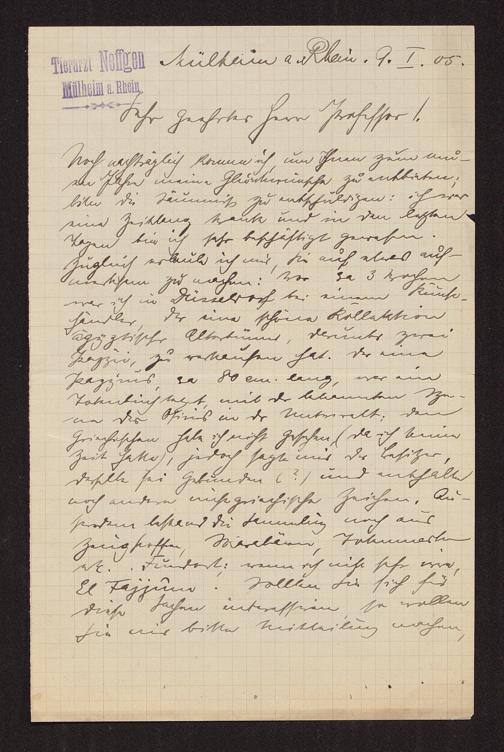 Tierarzt Neffgen
Mülheim a. Rhein.
Mülheim a. Rhein. 9. I. 05.
Sehr geehrter Herr Professor!
Noch nachträglich komme ich um Ihnen zum neu-
en Jahre meine Glückwünsche zu entbieten;
bitte die Säumnis zu entschuldigen: ich war
eine Zeitlang krank und in den letzten
Tagen bin ich sehr beschäftigt gewesen.
Zugleich erlaube ich mir, Sie auf etwas auf-
merksam zu machen: Vor ca 3 Wochen
war ich in Düsseldorf bei einem Kunst-
händler, der eine schöne Kollektion
ägyptischer Altertümer, darunter zwei
Papyri, zu verkaufen hat. Der eine
Papyrus, ca 80 cm. lang, war ein
Totenbuchtext, mit der bekannten Sze-
ne des Osiris in der Unterwelt; den
Griechischen habe ich nicht gesehen (da ich keine
Zeit hatte), jedoch sagte mir der Besitzer,
derselbe sei gebunden (?) und enthalte
noch andere nichtgriechische Zeichen. Au-
ßerdem bestand die Sammlung noch aus
Zeugstoffen, Skarabäen, Totenmasken
etc. Fundort: wenn ich nicht sehr irre,
El Fajjûm. Sollten Sie sich für
diese Sachen interessieren, so wollen
Sie mir bitte Mitteilung machen,